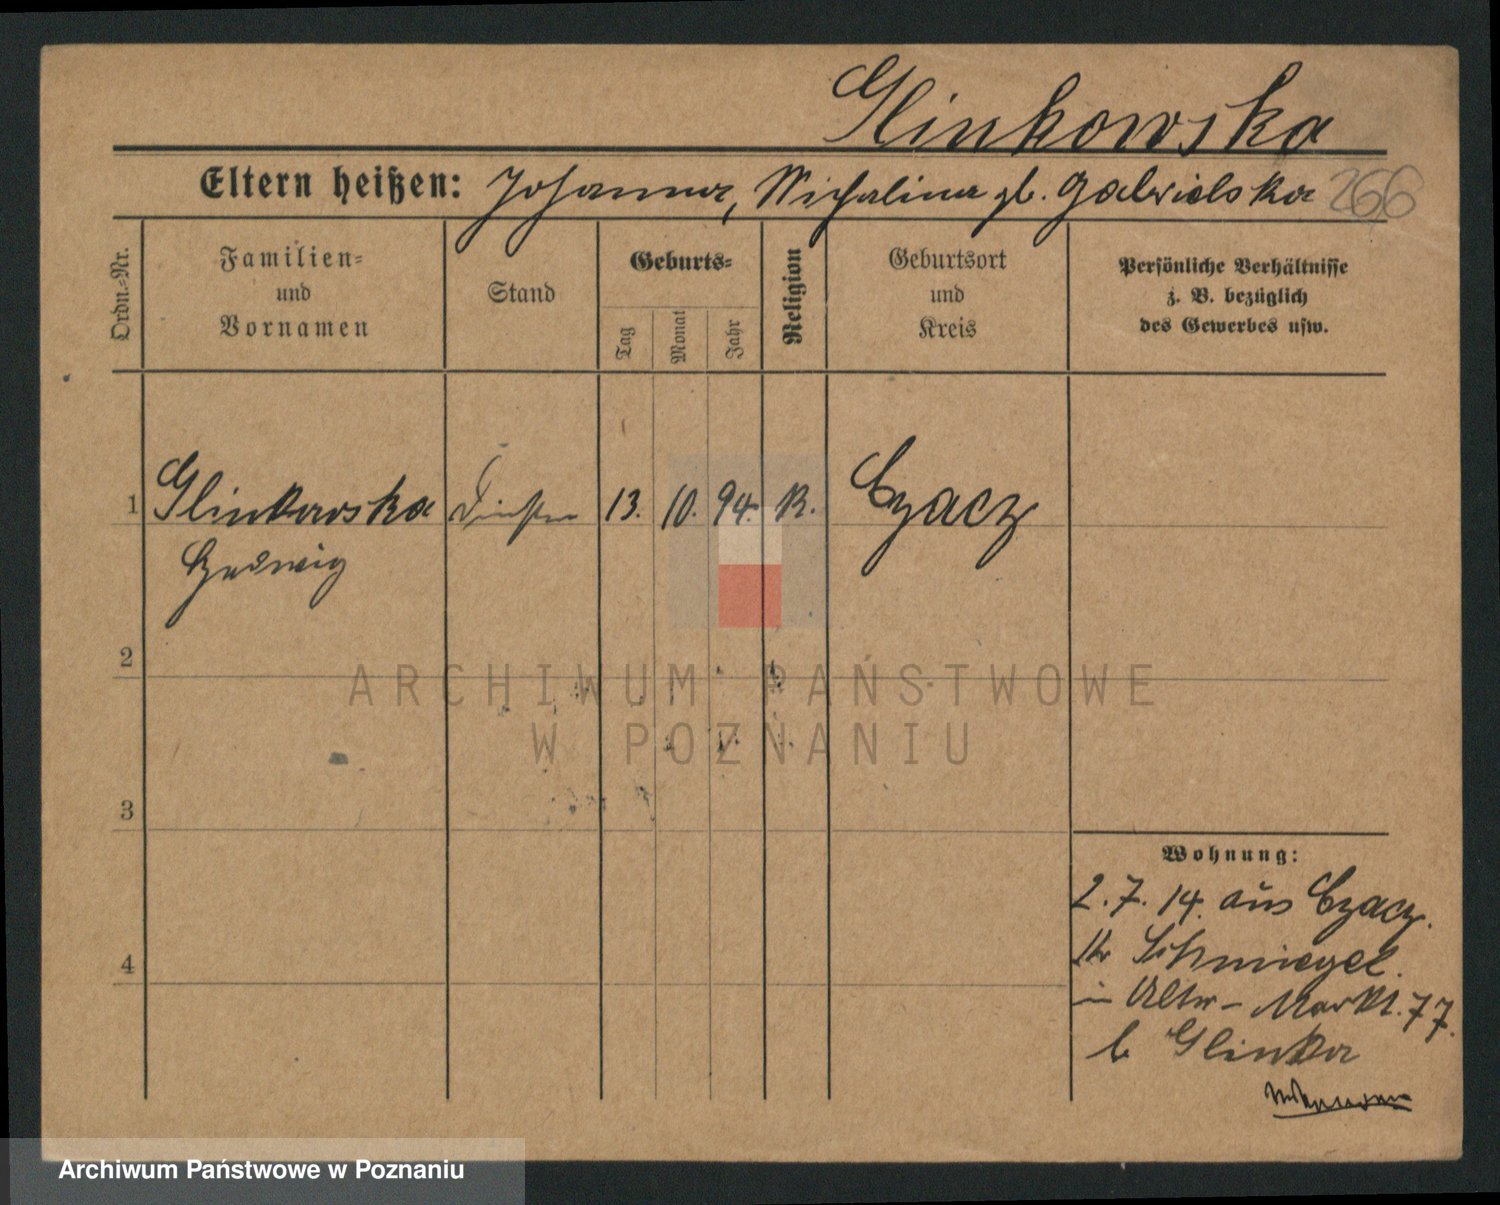 Glinkowska
Eltern heißen: Johanna, Michalina gb. Gabrielska 266
Ordn.-Nr.
Familien-
und
Vornamen
Stand
Geburts-
Tag
Monat
Jahr
Religion
Geburtsort
und
Kreis
Persönliche Verhältnisse
z. B. bezüglich
des Gewerbes usw.
1 Glinkowska 13. 10. 94. K. Czacz
Hedwig
2
3
4
ARCHIWUM PAŃSTWOWE
W POZNANIU
Wohnung:
2. 7. 14. aus Czacz.
Kr Schmiegel.
in Alter-Markt. 77.
b Glinka
Archiwum Państwowe w Poznaniu